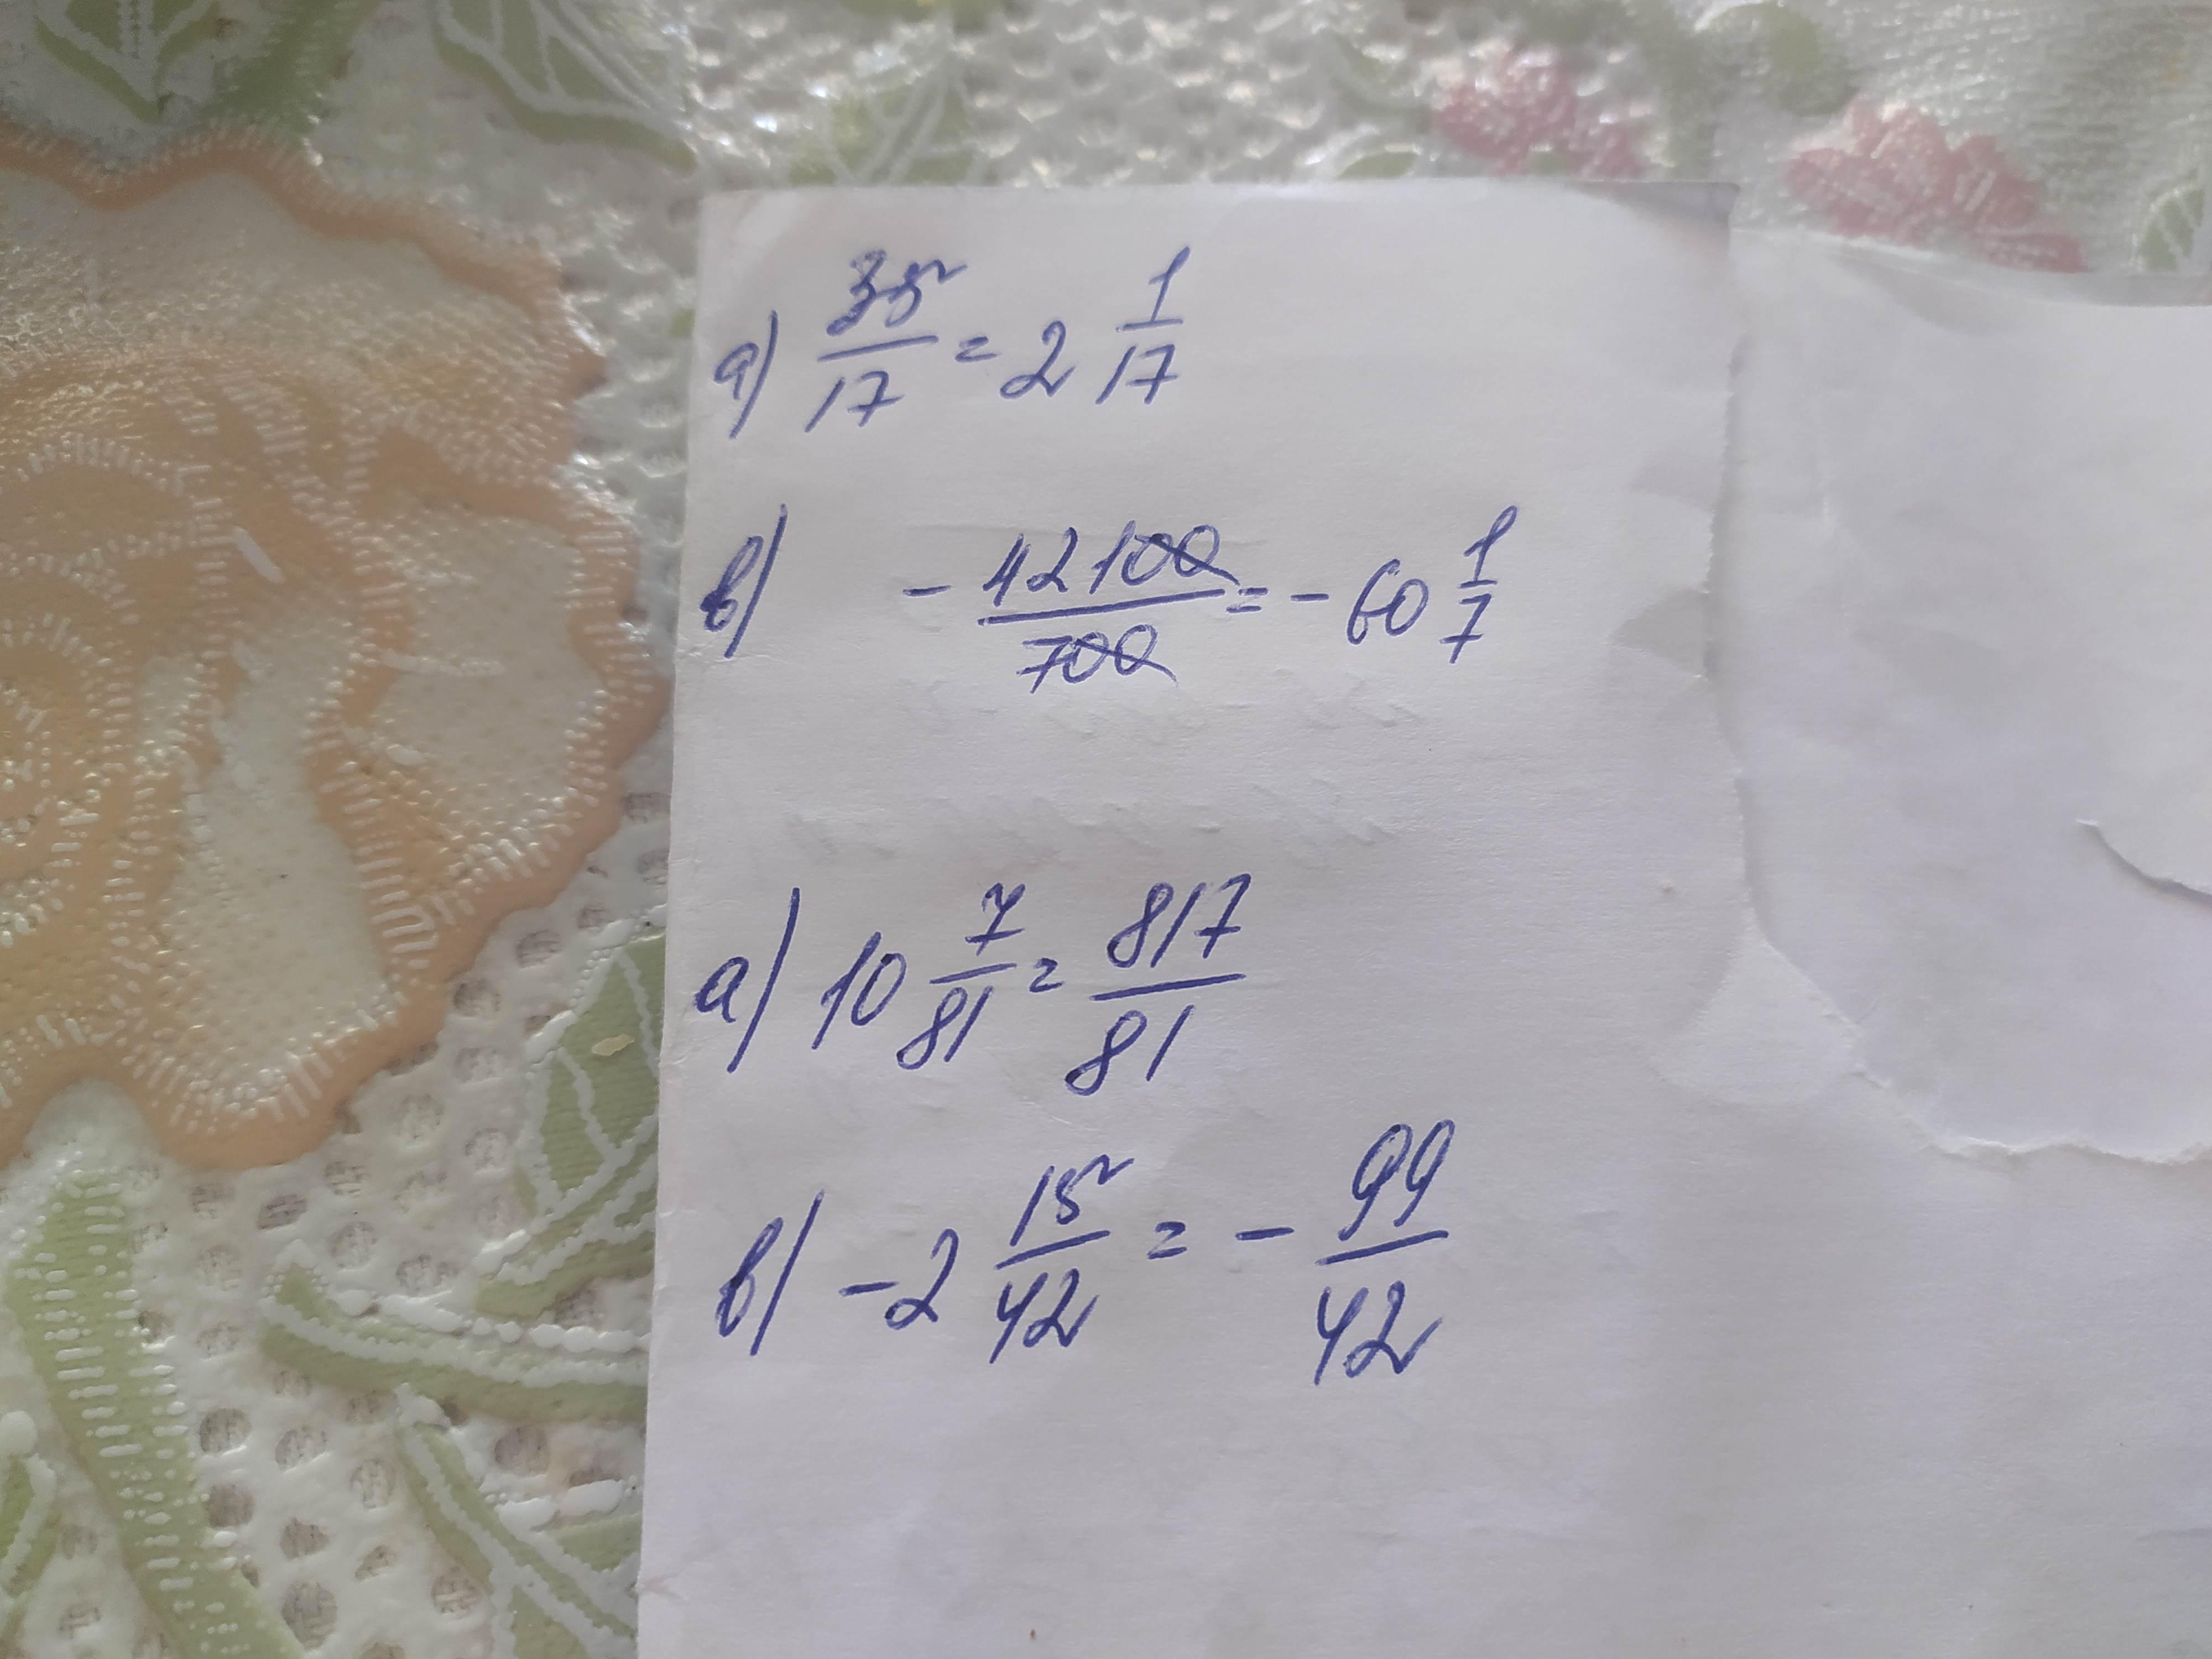 а) 35/17 = 2 1/17
в) - 42100/700 = - 60 1/7
а) 10 7/81 = 817/81
в) - 2 15/42 = - 99/42